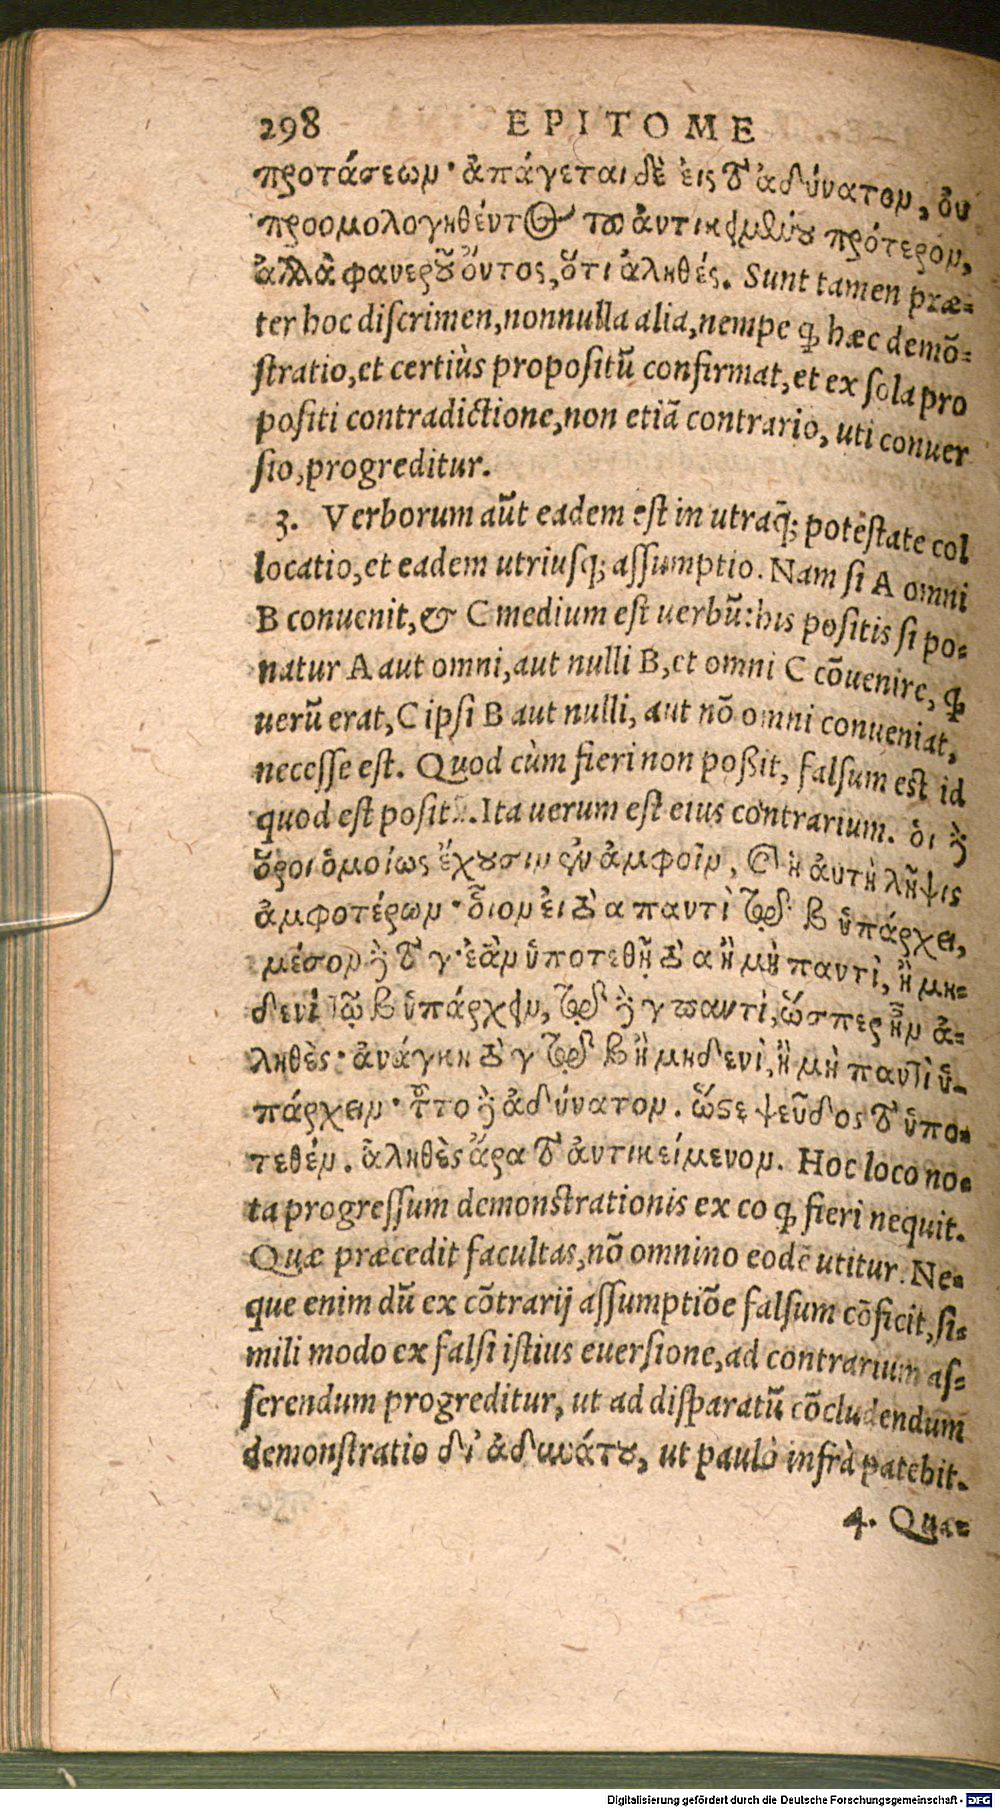 298 EPITOME
προτάσεων· ἀπάγεται δὲ εἰς τὸ ἀδύνατον, οὐ
προομολογηθέντος τοῦ ἀντικειμένου πρότερον,
ἀλλὰ φανεροῦ ὄντος, ὅτι ἀληθές. Sunt tamen præ=
ter hoc diſcrimen, nonnulla alia, nempe ꝙ hæc demõ=
ſtratio, et certiùs propoſitũ confirmat, et ex ſola pro
poſiti contradictione, non etiã contrario, uti conuer
ſio, progreditur.
3. Verborum aũt eadem eſt in utraq̃; poteſtate col
locatio, et eadem utriuſq; aſſumptio. Nam ſi A omni
B conuenit, & C medium eſt uerbũ: his poſitis ſi po=
natur A aut omni, aut nulli B, et omni C cõuenire, ꝙ
uerũ erat, C ipſi B aut nulli, aut nõ omni conueniat,
neceſſe eſt. Quod cùm fieri non poßit, falſum eſt id
quod eſt poſit. Ita uerum eſt eius contrarium. ὁι δὲ
ὅροι ὁμοίως ἔχουσιν ἐν ἀμφοῖν, καὶ ἡ ἀυτὴ λῆψις
ἀμφοτέρων· ὃιον ἐι τὸ α παντὶ τῷ β ὑπάρχει,
μέσον δὲ τὸ γ· ἐὰν ὑποτεθῇ τὸ α ἢ μὴ παντὶ, ἢ μη=
δενὶ τῷ β ὑπάρχειν, τῷ δὲ γ παντὶ, ὥσπερ ἦν ἀ=
ληθὲς· ἀνάγκη τὸ γ τῷ β ἢ μηδενὶ, ἢ μὴ παντὶ ὑ=
πάρχειν· τοῦτο δὲ ἀδύνατον. ὥστε ψεῦδος τὸ ὑπο=
τεθέν. ἀληθὲς ἄρα τὸ ἀντικείμενον. Hoc loco no=
ta progreſſum demonſtrationis ex eo ꝙ fieri nequit.
Quæ præcedit facultas, nõ omnino eodẽ utitur. Ne=
que enim dũ ex cõtrarij aſſumptiõe falſum cõficit, ſi=
mili modo ex falſi iſtius euerſione, ad contrarium aſ=
ſerendum progreditur, ut ad diſparatũ cõcludendum
demonſtratio δι' ἀδυνάτου, ut paulò infrà patebit.
4. Qua=
Digitalisierung gefördert durch die Deutsche Forschungsgemeinschaft - DFG